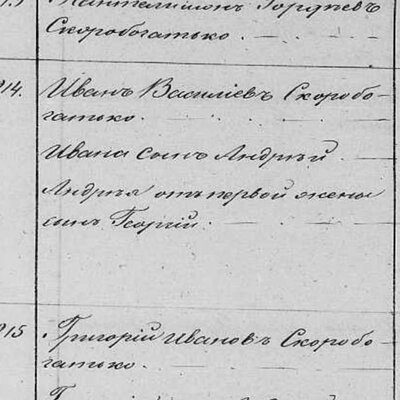 Пантелимонъ Гордѣевъ
Скоробогатько.
914. Иванъ Василіевъ Скоробо-
гатько.
Ивана сынъ Андрѣй
Андрѣя отъ первой жены
сынъ Георгій.
915 Григорій Ивановъ Скоробо-
гатько.